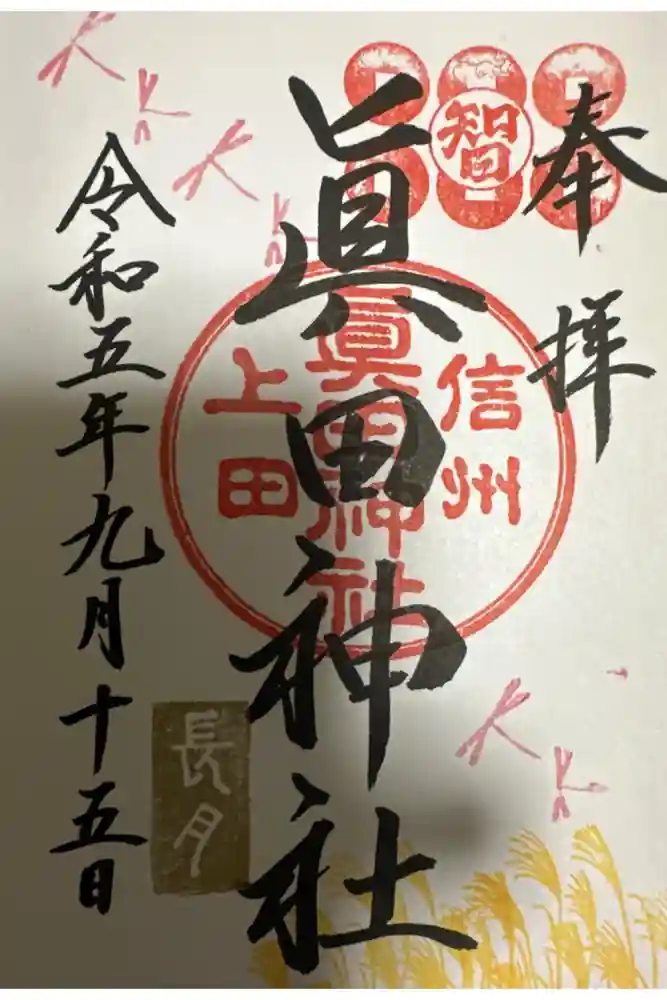 奉拝
智
信州
眞田神社
眞田神社
上田
長月
令和五年九月十五日